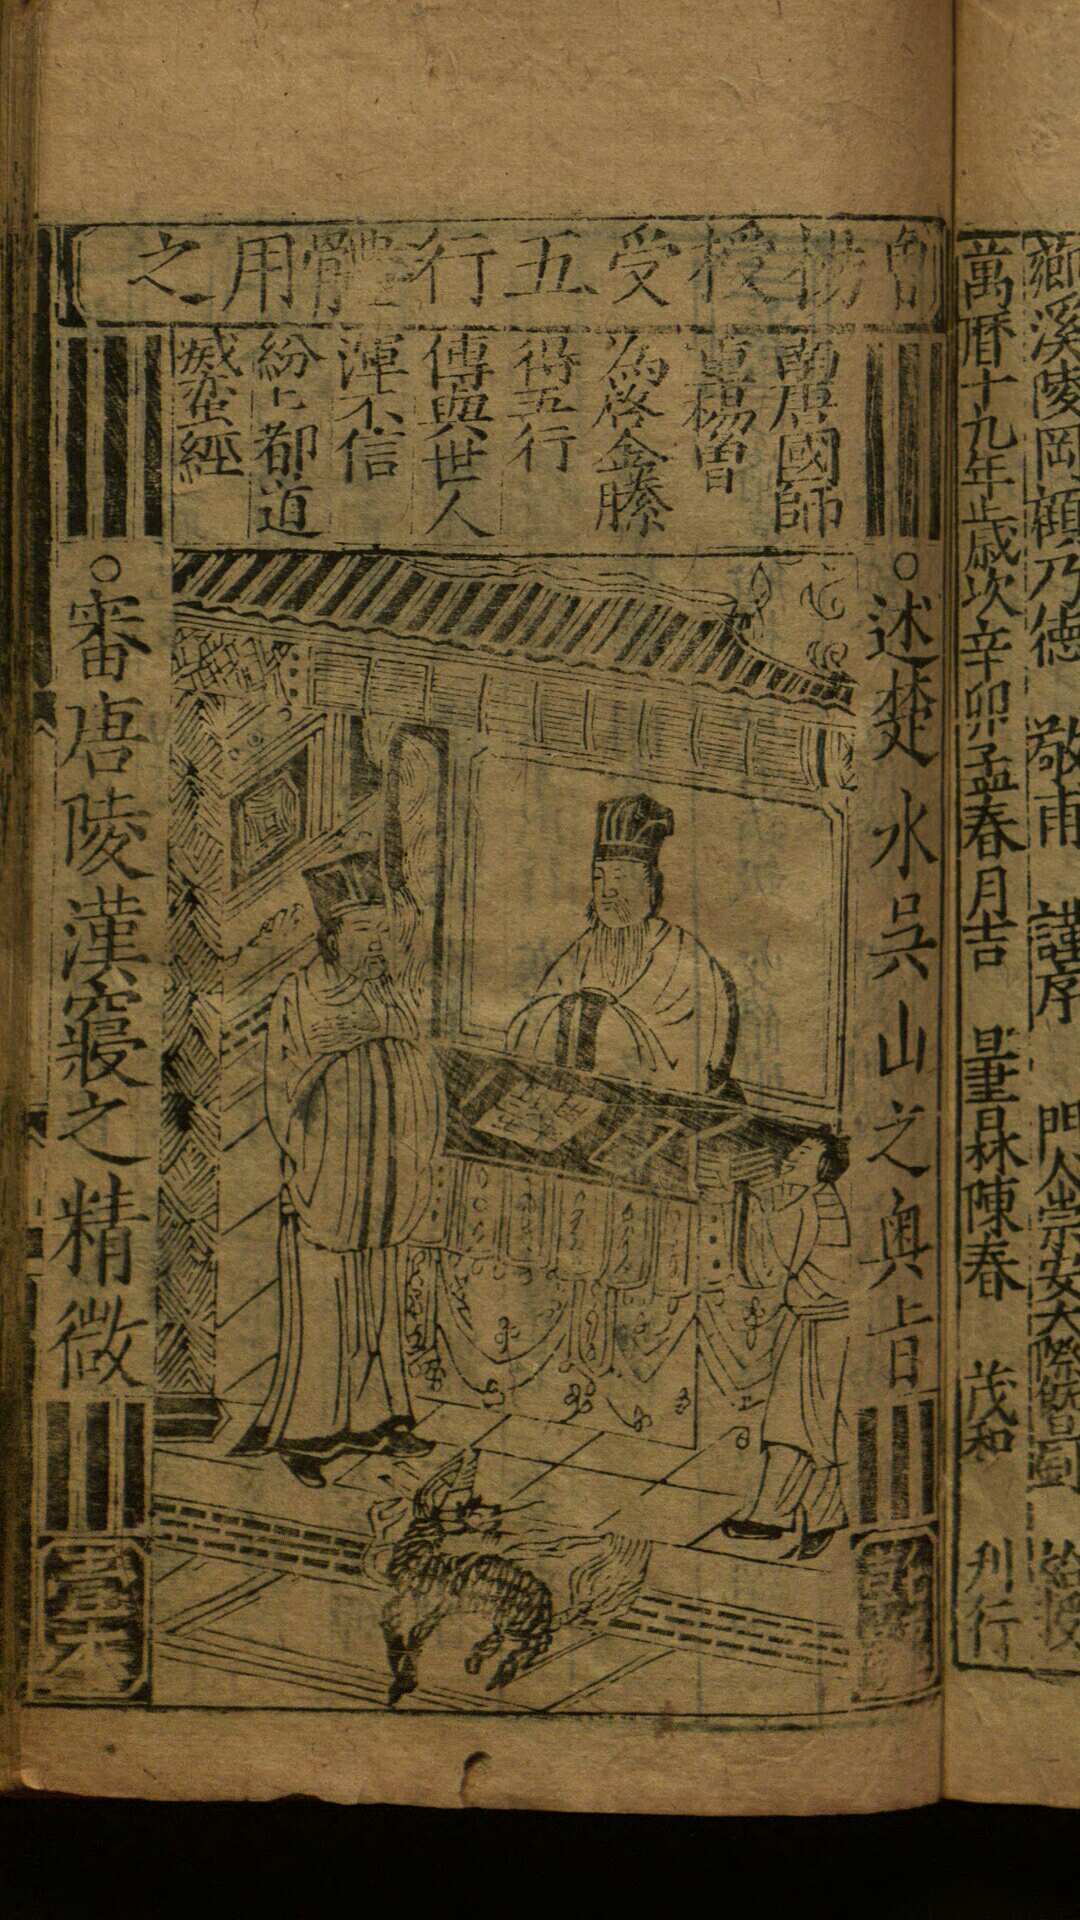 鄉溪陵岡顧乃德 敬甫 謹序 門人崇安大
萬曆十九年歲次辛卯孟春月吉 林陳春 茂和 刋行
曾楊授受五行體用之
南唐國師
楊曾
為啓金縢
得五行
傳與世人
渾不信
紛〻都道
滅蠻經
○述楚水吳山之奥旨
○審唐陵漢寢之精微